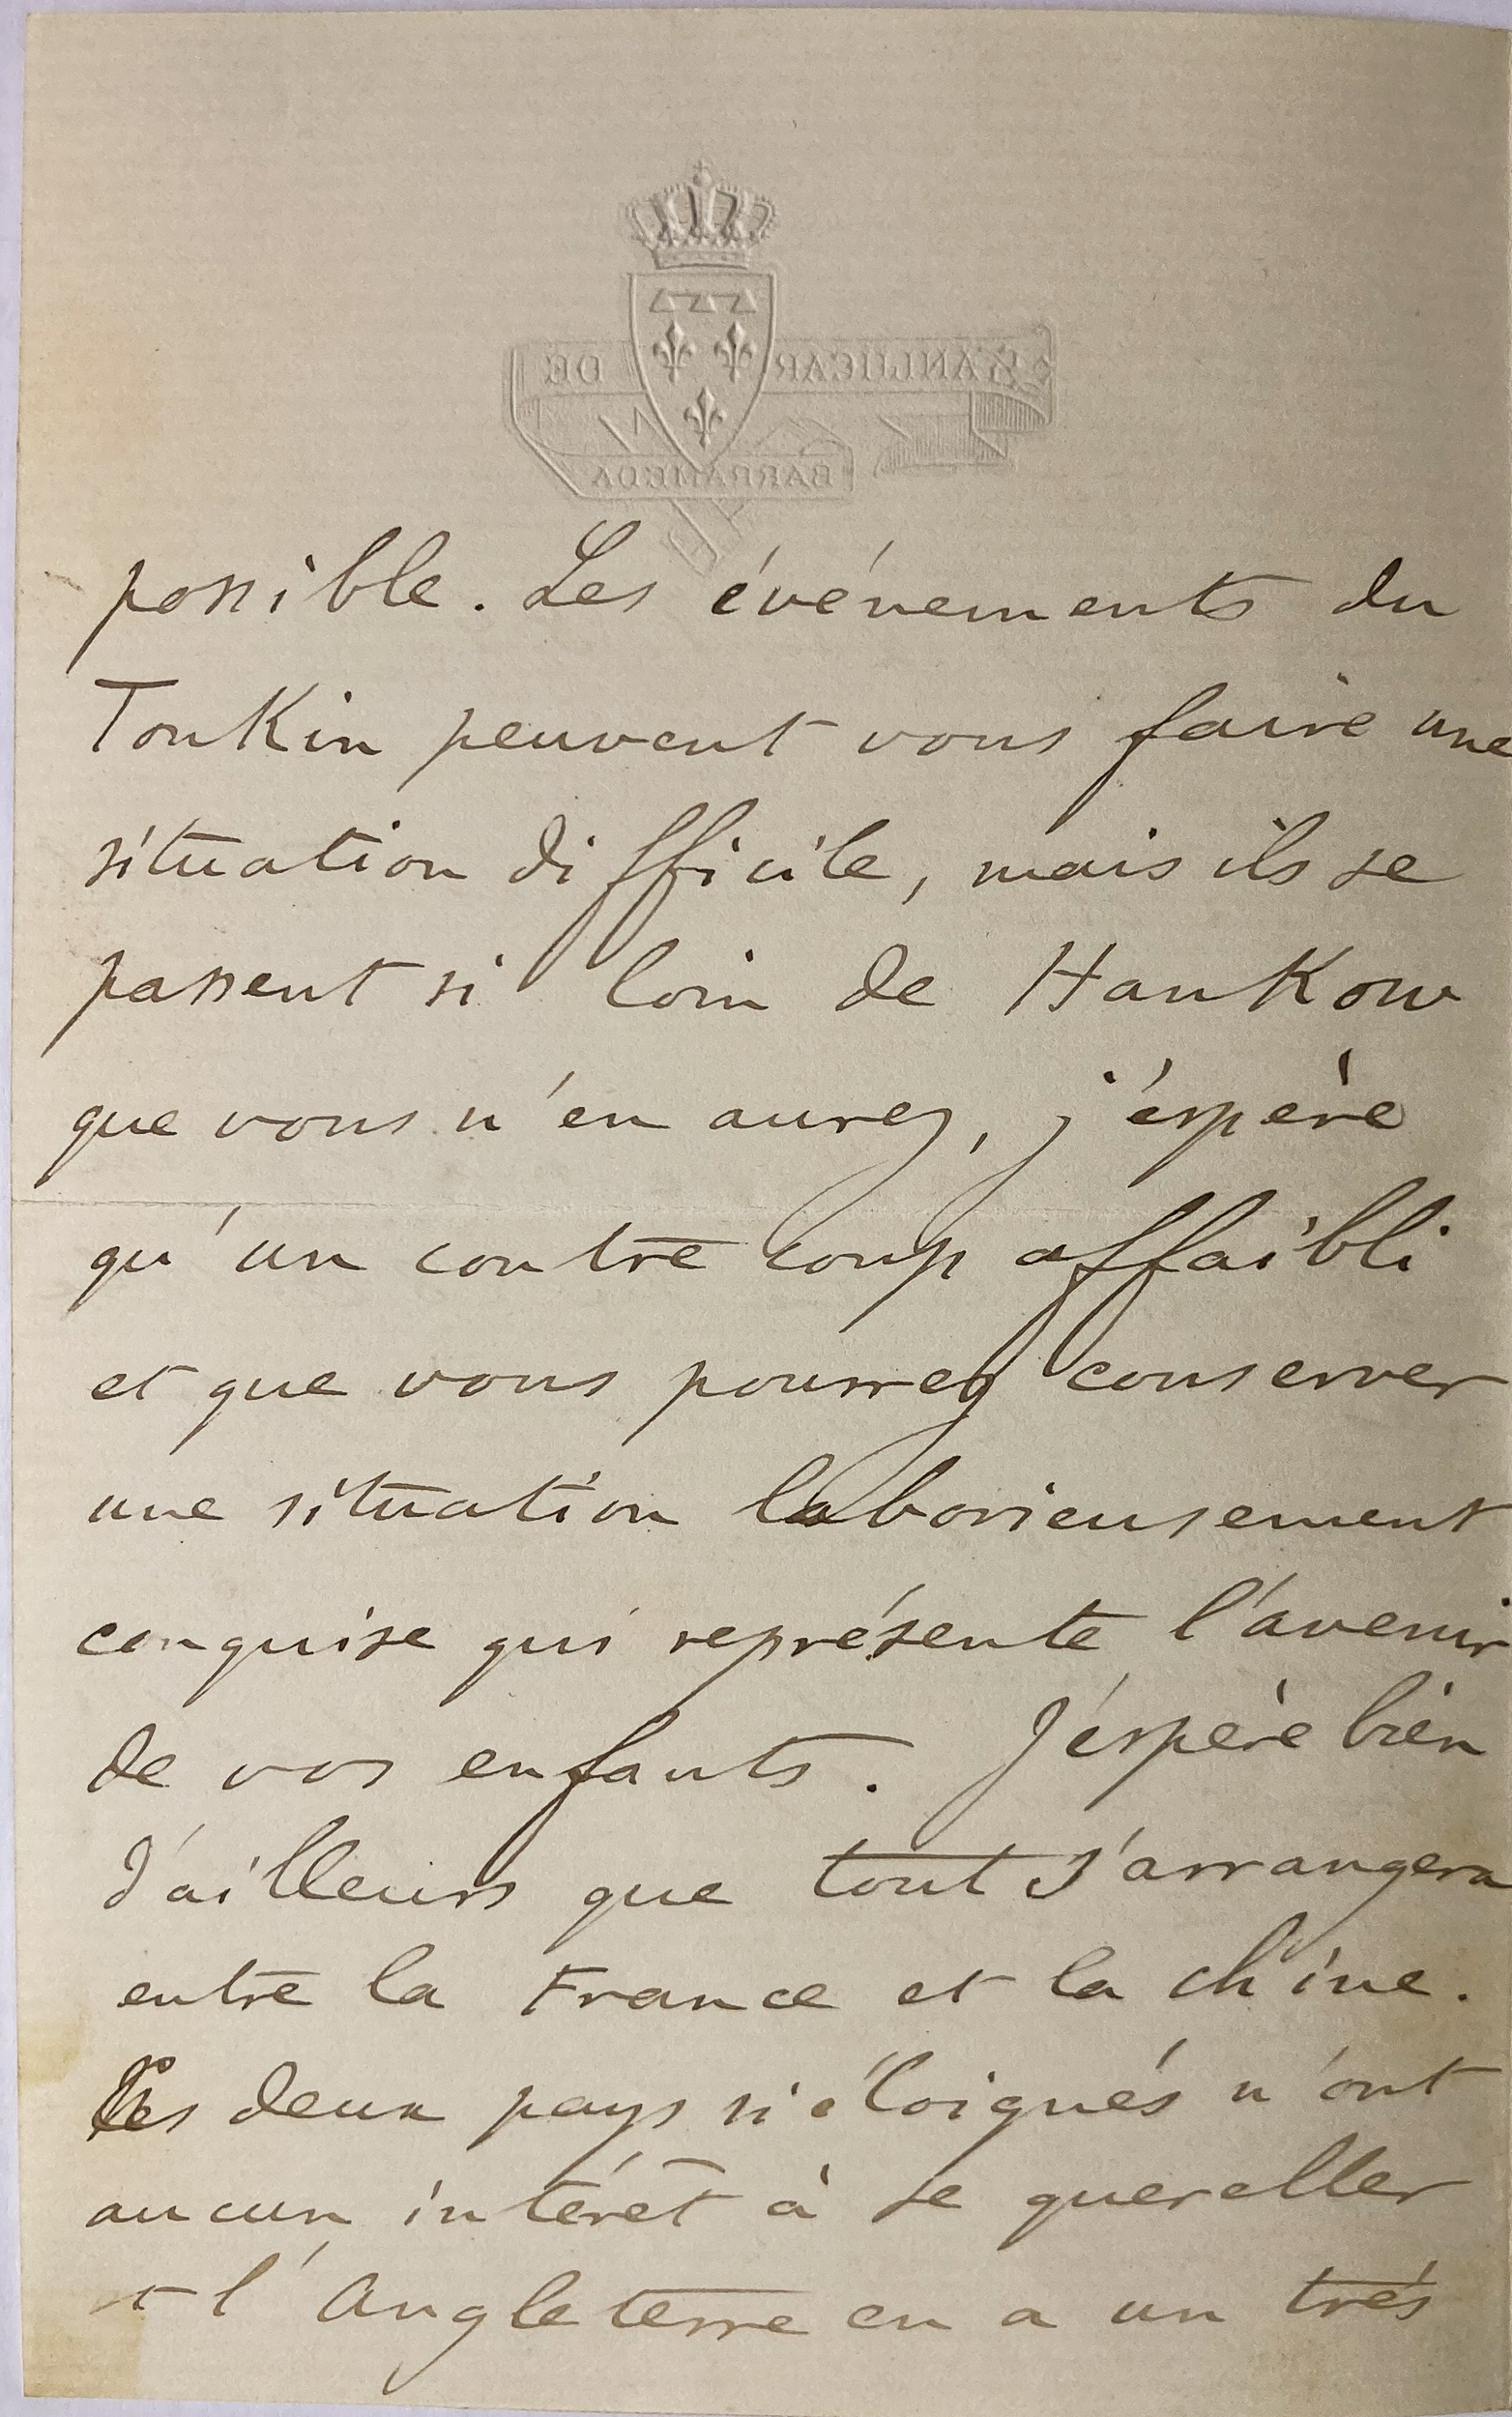 SANLUCAR DE
BARRAMEDA
possible. Les événements du
Tonkin peuvent vous faire une
situation difficile, mais ils se
passent si loin de Hankow
que vous n'en aurez, j'éspère
qu'un contre coup affaibli
et que vous pourrez conserver
une situation laborieusement
conquise qui représente l'avenir
de vos enfants. J'éspère bien
d'ailleurs que tout s'arrangera
entre la France et la chine.
les deux pays si éloignés n'ont
aucun intérêt à se quereller
et l'Angleterre en a un très